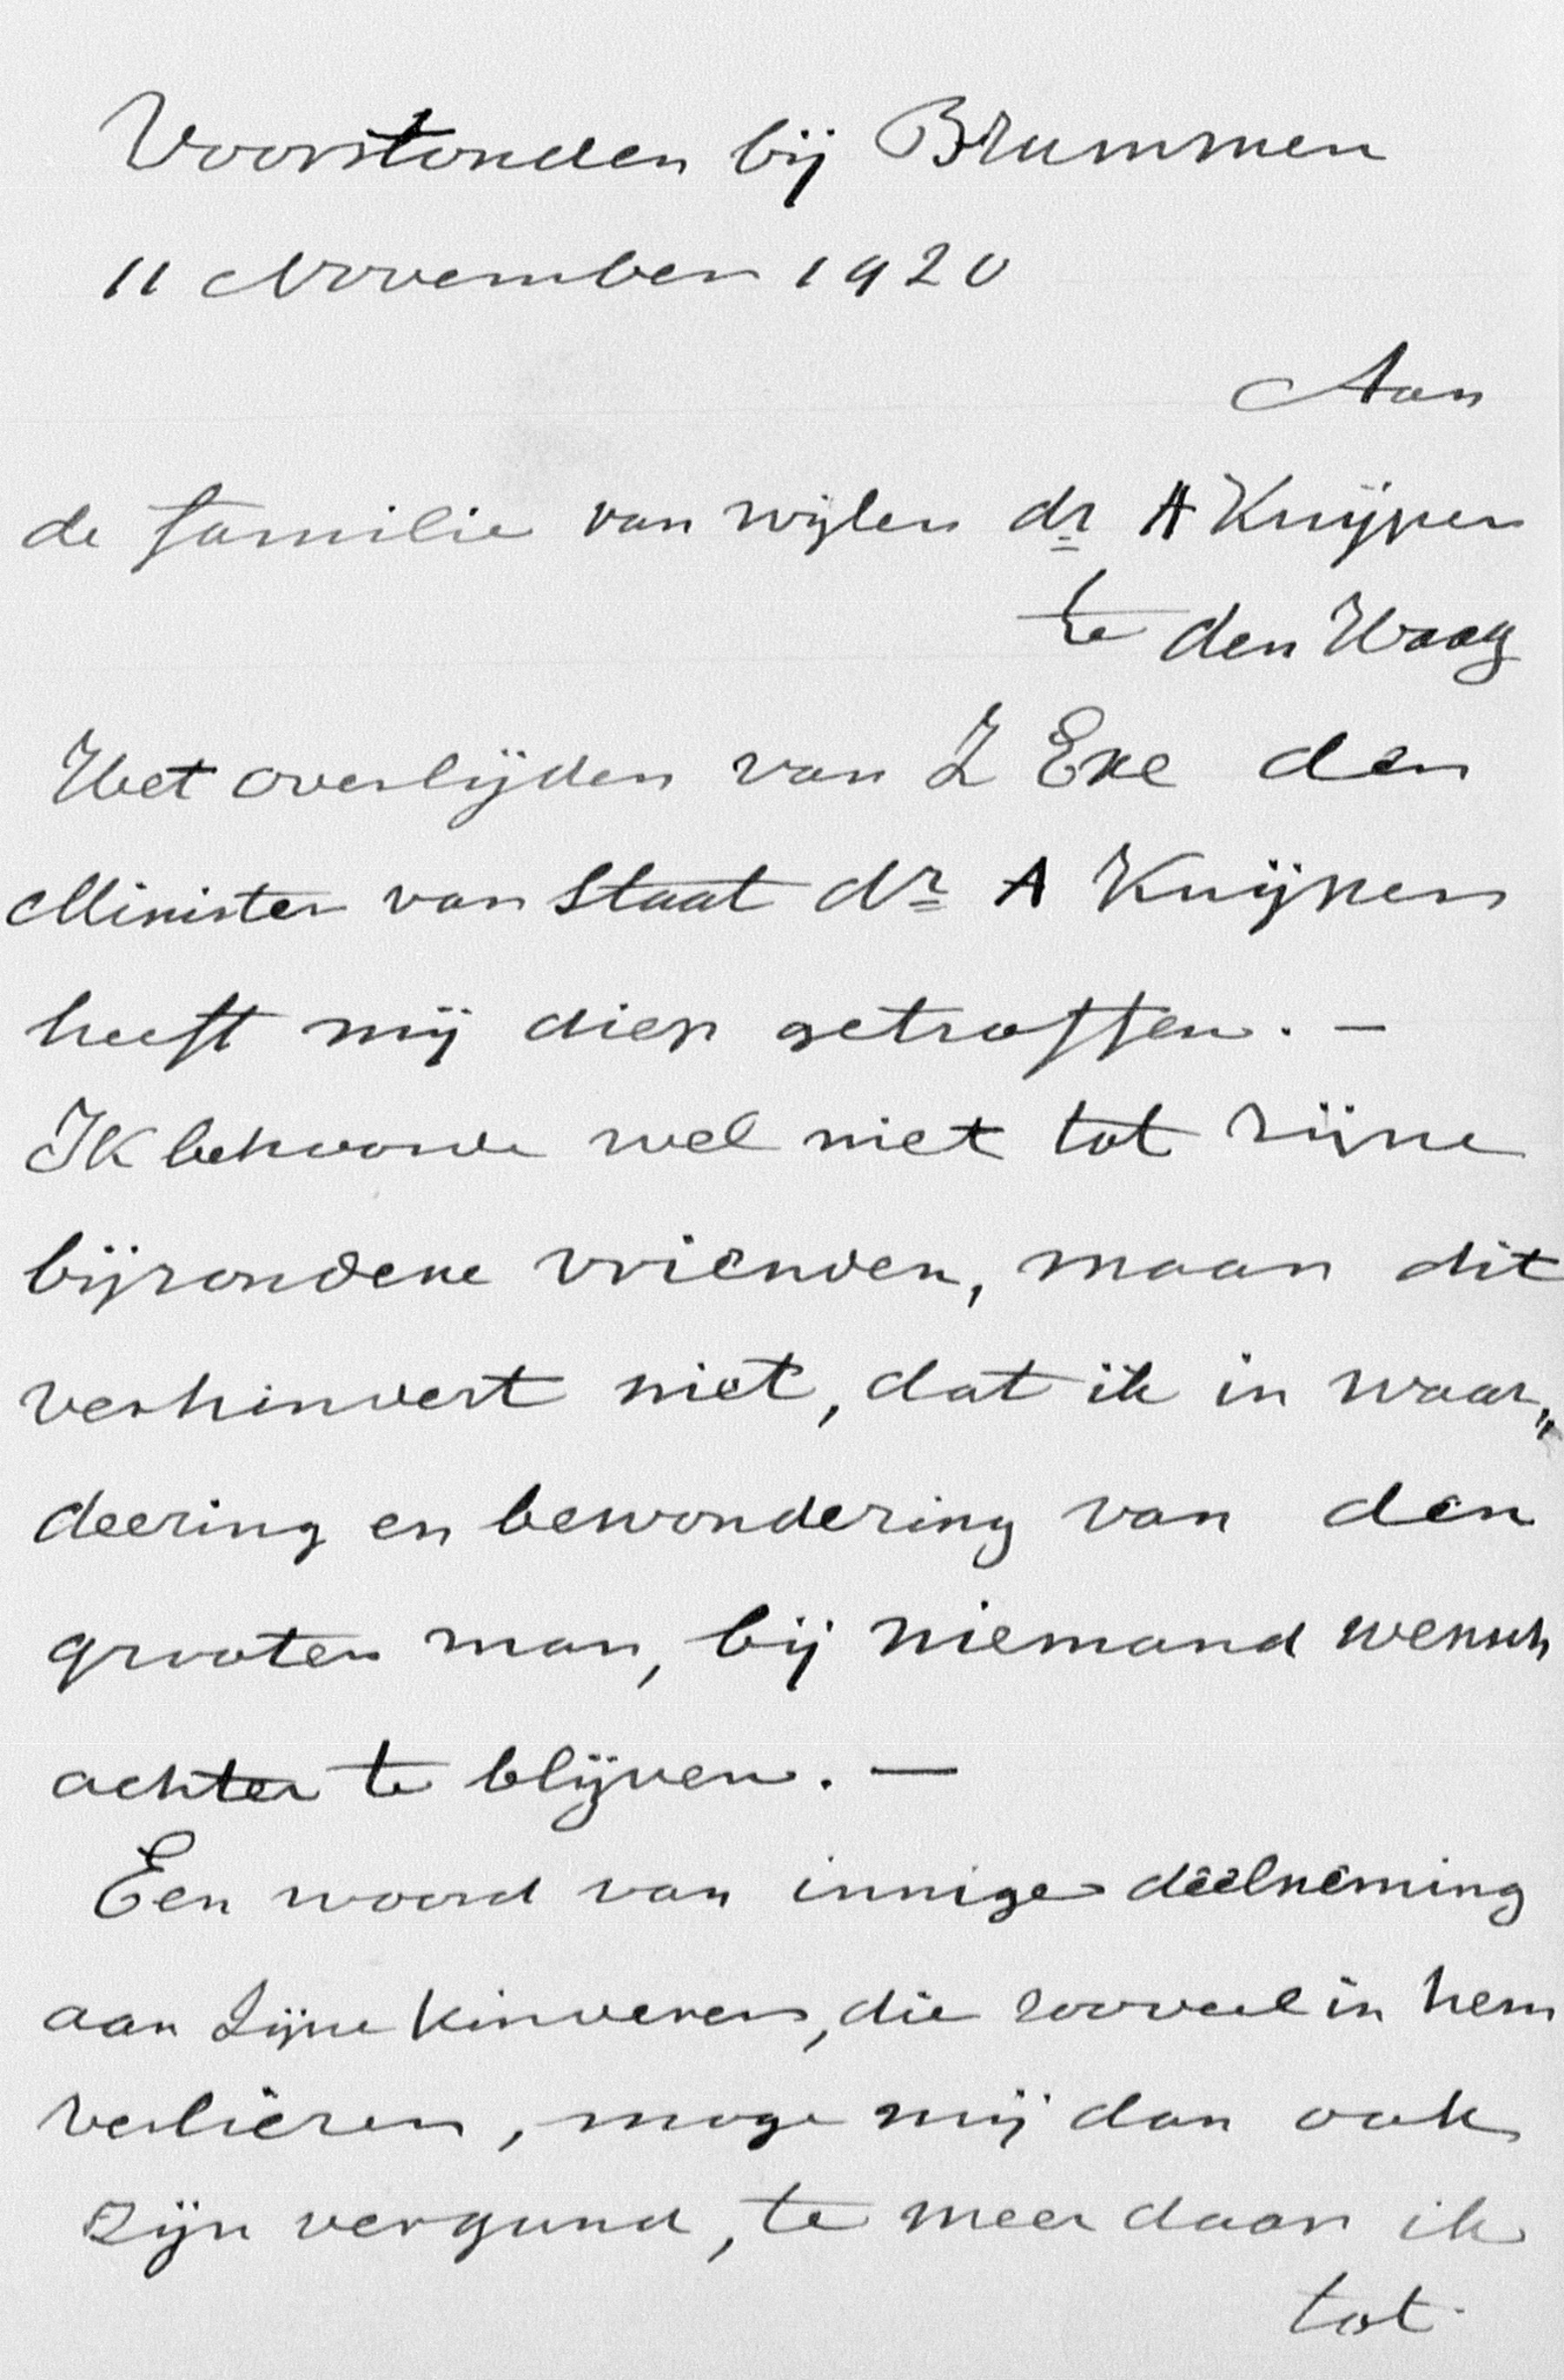 Voorstonden bij Brummen
11 November 1920
Aan
de familie van wijlen dr A Kuijper
te den Haag
Het overlijden van Z Exe den
Minister van Staat dr A Kuijper
heeft mij diep getroffen. —
Ik behoorde wel niet tot zijne
bijzondere vrienden, maar dit
verhindert niet, dat ik in waar„
deering en bewondering van den
grooten man, bij niemand wensch
achter te blijven. —
Een woord van innige deelneming
aan zijne kinderen, die zooveel in hem
verliezen, moge mij dan ook
zijn vergund, te meer daar ik
tot